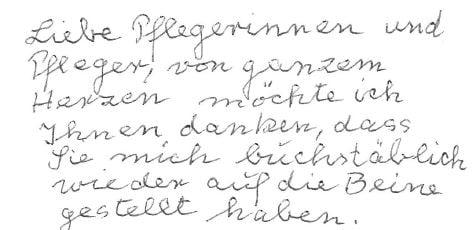 Liebe Pflegerinnen und
Pfleger, von ganzem
Herzen möchte ich
Ihnen danken, dass
Sie mich buchstäblich
wieder auf die Beine
gestellt haben.